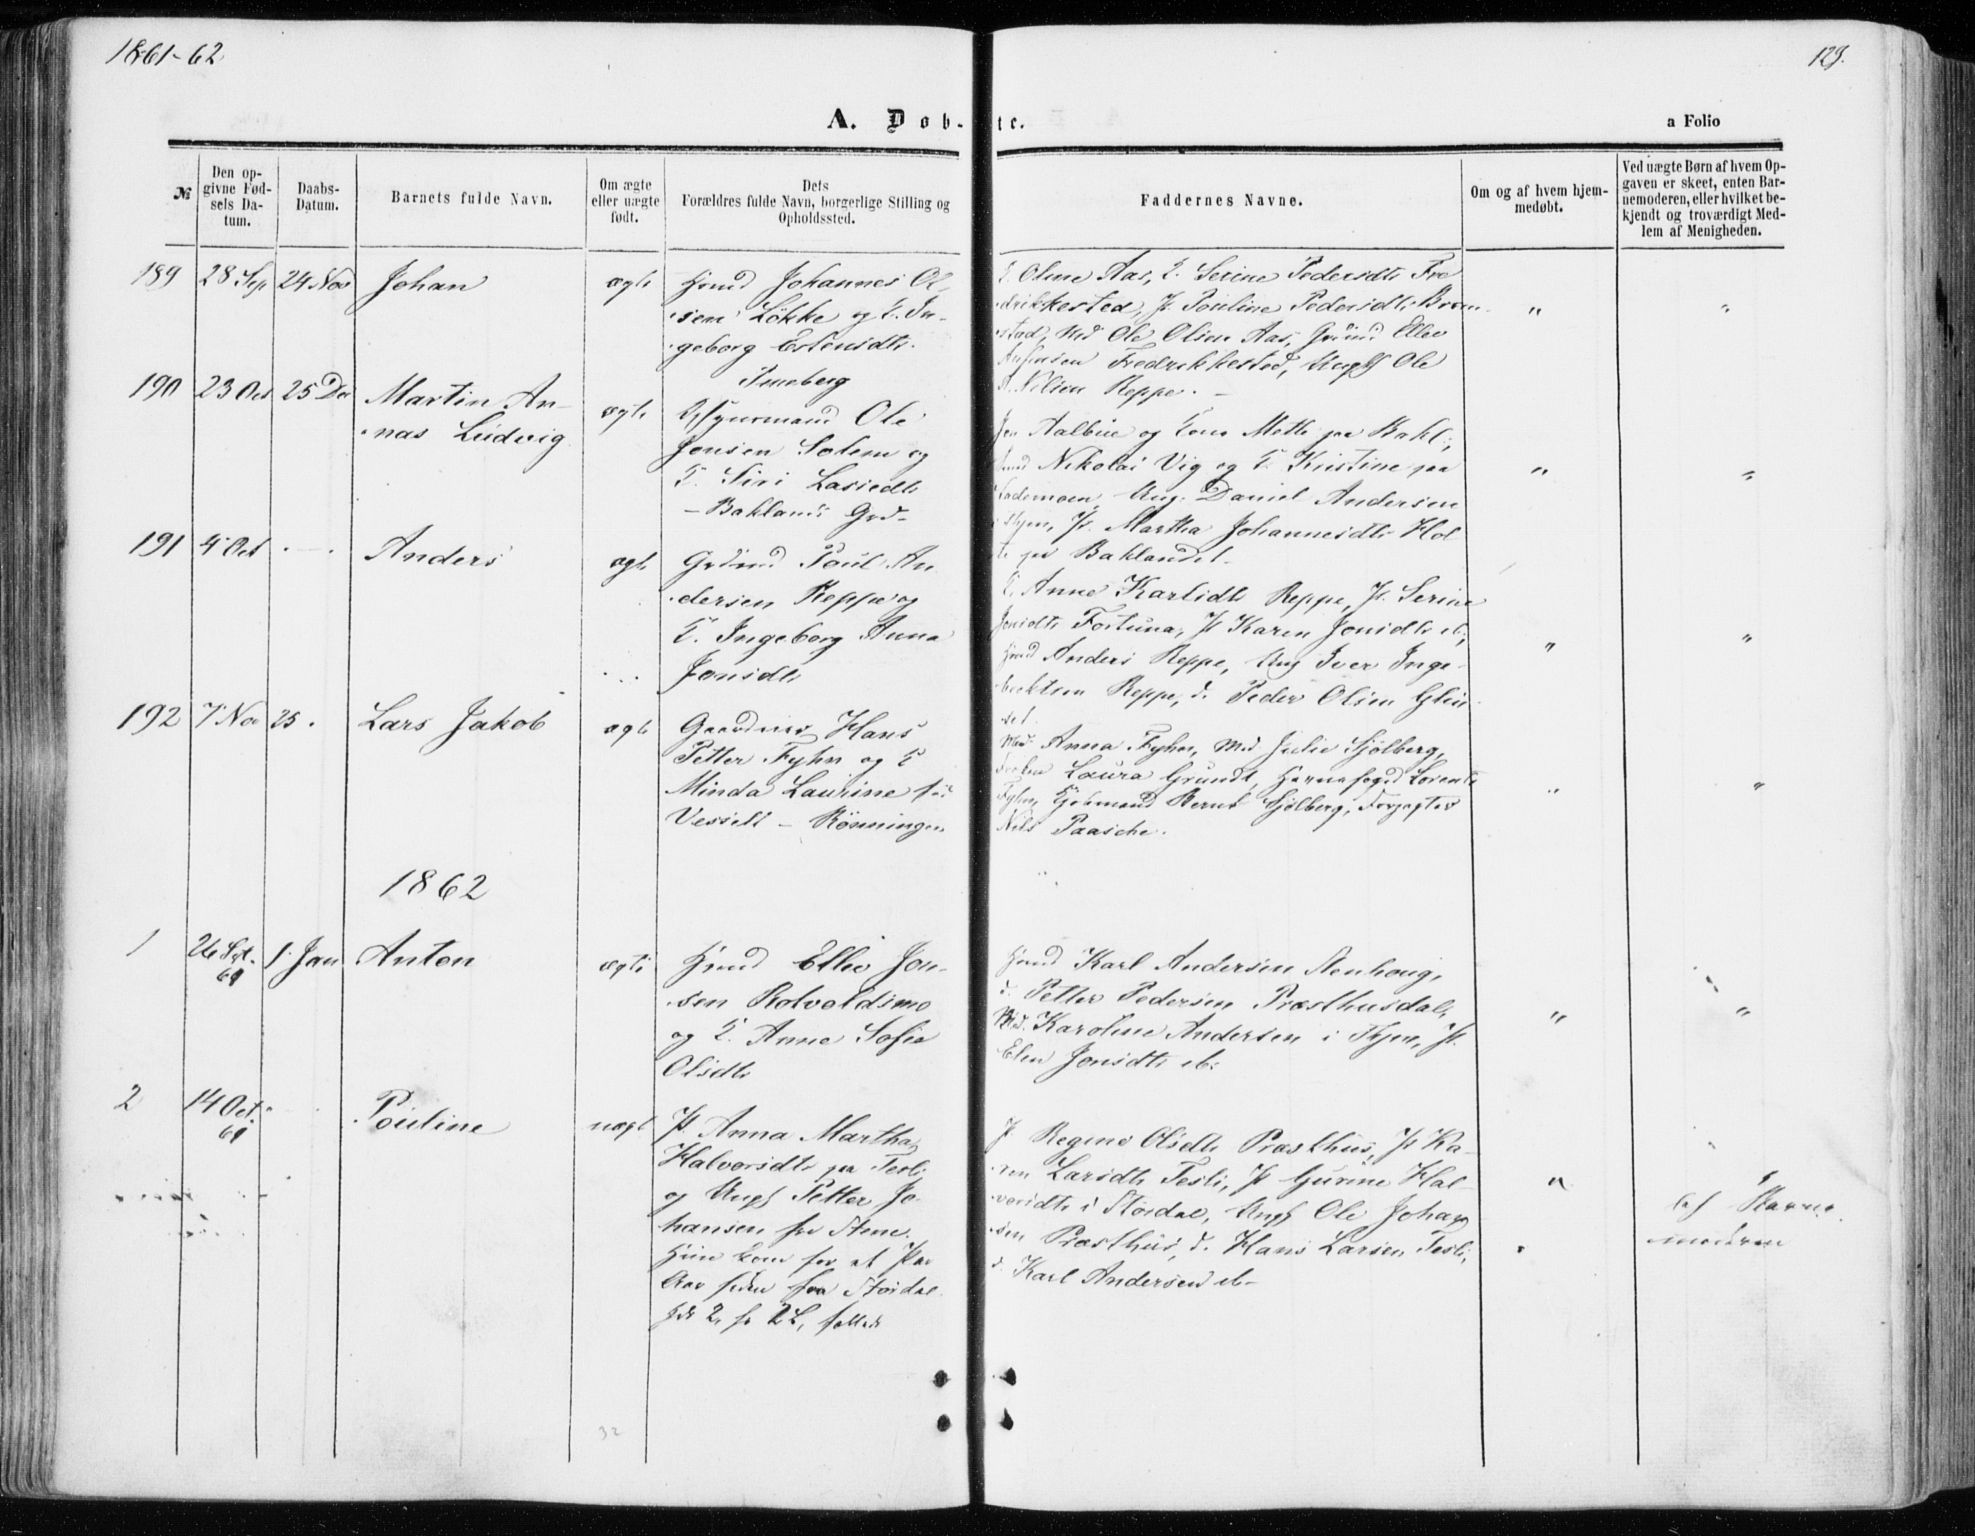 1861-62
129.
A. Døb-
te.
a Folio
№
Den op-
givne Fød-
sels Da-
tum.
Daabs-
Datum.
Barnets fulde Navn.
Om ægte
eller uægte
født.
Dets
Forældres fulde Navn, borgerlige Stilling og
Opholdssted.
Faddernes Navne.
Om og af hvem hjem-
medøbt.
Ved uægte Børn af hvem Op-
gaven er skeet, enten Bar-
nemoderen, eller hvilket be-
kjendt og troværdigt Med-
lem af Menigheden.
189 28 Sep 24 Nov Johan ægte
Johannes Ol-
sen Løkke og E. In-
geborg Estensdtr.
E. Oline Aas, E. Serine Pedersdtr Fre
drikkested, P. Pouline Pedersdtr Brom-
stad, Md Ole Olsen Aas, Grdmd Ellev
Fredrikkested, Ungk Ole
Nilsen Reppe. " "
190 23 Oct 25 De Martin An-
nas Ludvig ægte
Ole
Jonsen Solem og
E. Siri Lasiedtr
- Baklands Grd-
Aalbue og Kone Mette paa Bakl.,
Nikolai Vig og E. Kristine paa
Lademoen, Ung. Daniel Andersen
P. Martha Johannesdtr Hol
paa Baklandet. " "
191 4 Oct - Anders ægte
Grdmd Poul An
dersen Reppe og
E. Ingeborg Anna
Jonsdtr
E. Anne Karlsdtr Reppe, P. Serine
Jonsdtr Fortuna, P Karen Jonsdtr ib.,
Anders Reppe, Ung Iver Inge-
brektsen Reppe, d. Peder Olsen
" "
192 7 Nov 25. Lars Jakob ægte
Hans
Petter Fyhn og E
Minda Laurine fød
Vessell - Rønningen
Md. Anna Fyhn, Md Julie Sjølberg,
Frøken Laura Grundt, Havnefoged Lorents
Fyhn, Kjøbmand Bernt Sjølberg, Forpagter
Nils Paasche. " "
1862
1 26 Sept. 61 1 Jan Anton ægte
Hmd Ellev Jon-
sen Rotvoldsmo
og E. Anne Sofie
Olsdtr
Hmd Karl Andersen Stenhoug,
d. Petter Pedersen Præsthusdal,
Md. Karoline Andersen i P.
Elen Jonsdtr ib. " "
2 14 Oct. 61 Pouline uægt
P. Anna Martha
Halvorsdtr paa Tesli
og Ungk Petter Jo-
hansen fra
Hun kom for et Par
Aar siden fra Stordal.
P Regine Olsdtr Præsthus, P. Ka-
ren Larsdtr Tesli, P Gurine Hal-
vorsdtr i Stordal, Ungk Ole Johan
sen Præsthus, d. Hans Larsen Tesli,
d. Karl Andersen ib-
" af Barne
moderen
32